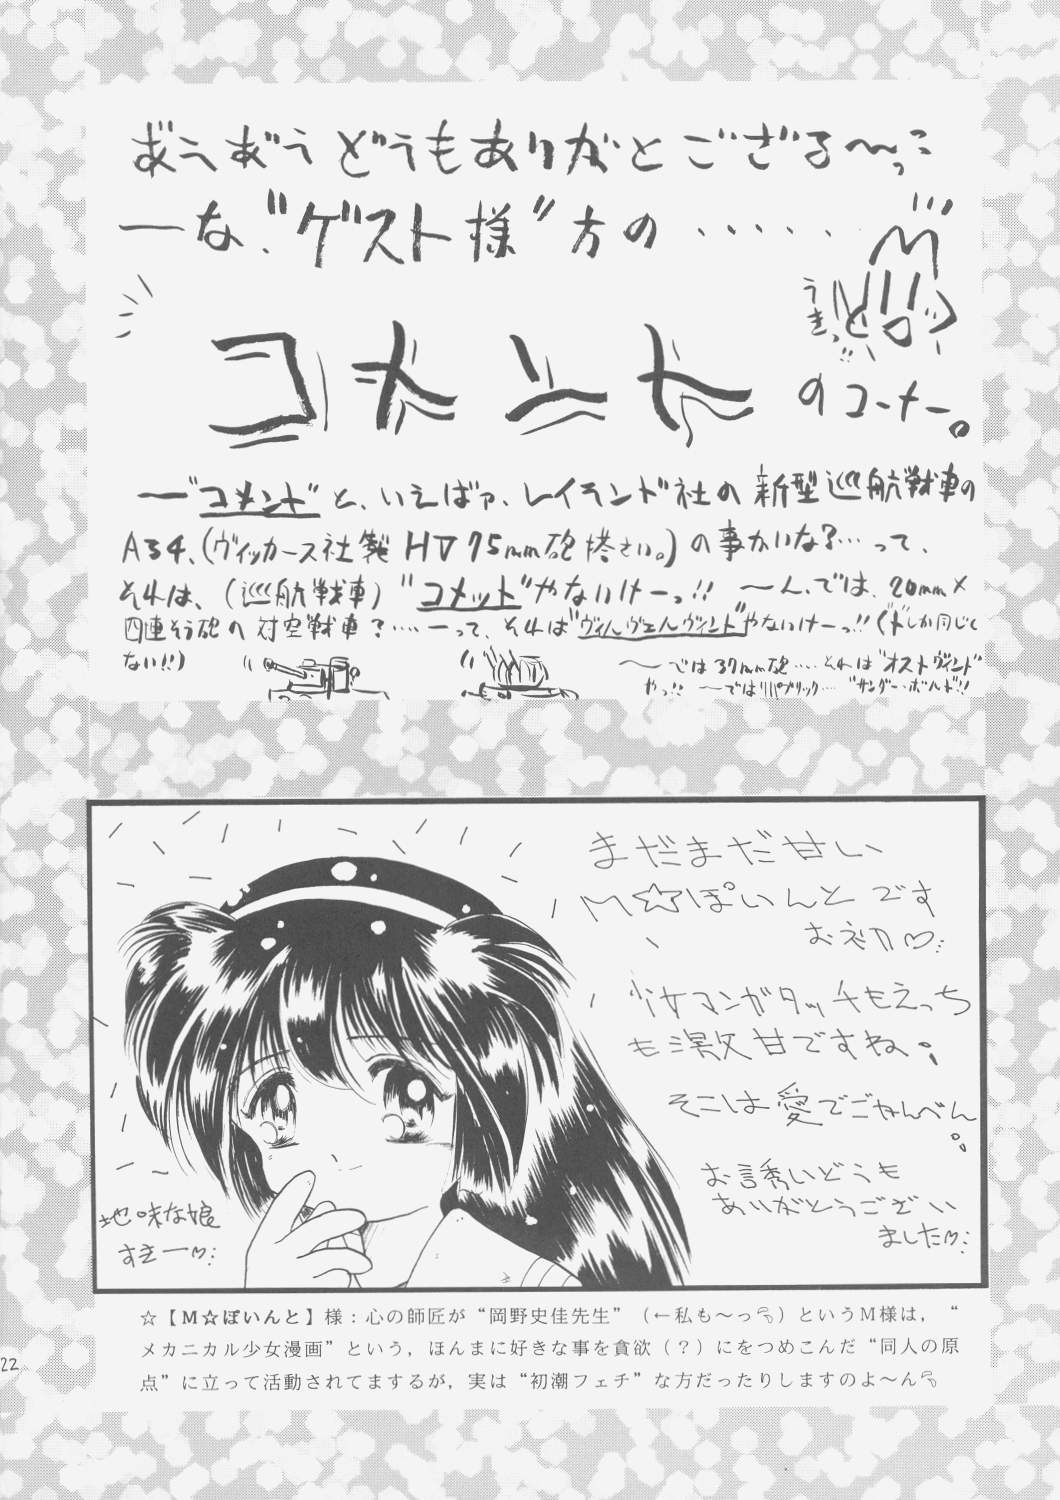 どうもありがとござる〜っ
ーな、"ゲスト様"方の・・・・・・
うきっ
コメント
のコーナー。
―"コメント"と、いえばァ、レイランド社の新型巡航戦車の
A34、(ヴィッカース社製 HV75mm砲搭さい。)の事かいな?…って、
それは、(巡航戦車)"コメット"やないけーっ!! 〜ん、では、20mm×
四連そう砲の対空戦車?……ーって、それは"ヴィルヴェルヴィンド"やないけーっ!!(ドしか同じく
ない!!)
〜では37mm砲……それは"オストヴィンド"
やっ!! 〜ではリパブリック…"サンダーボルド"!!
まだまだ甘い
M☆ぽいんとです
お初
少女マンガタッチもえっち
も激甘ですね
そこは愛でごかんべん
お誘いどうも
ありがとうござい
ました
地味な娘
すきー
☆【M☆ぽいんと】様:心の師匠が“岡野史佳先生”(←私も〜っ)というM様は,“
メカニカル少女漫画”という,ほんまに好きな事を貪欲(?)にをつめこんだ“同人の原
点”に立って活動されてまするが,実は“初潮フェチ”な方だったりしますのよ〜ん
22